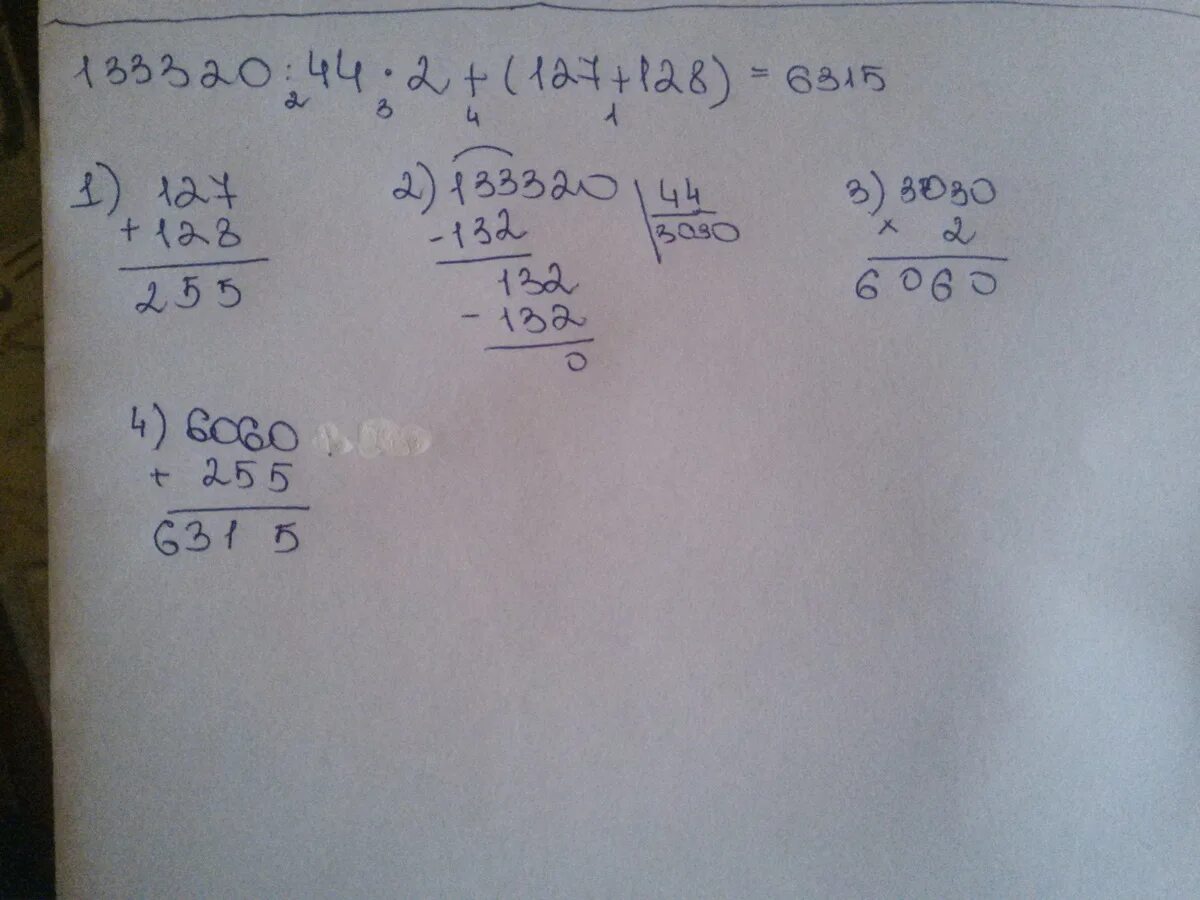 133320:44·2+(127+128) = 6315
2 3 4 1
1) 127
+ 128
255
2) 133320 44
3030
-132
132
- 132
0
3) 3030
× 2
6060
4) 6060
+ 255
6315